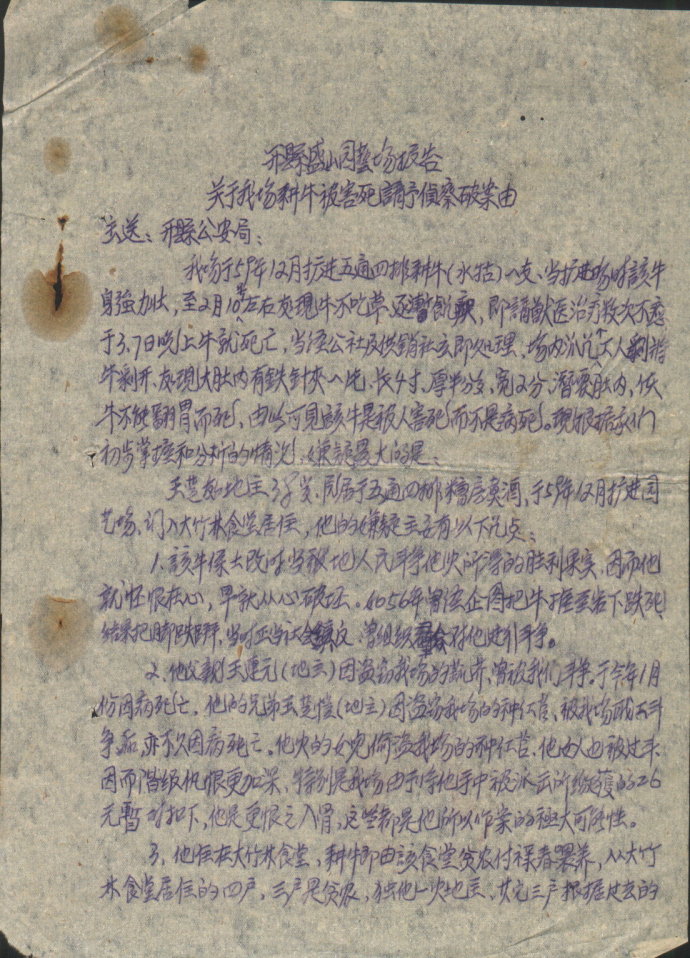 开縣盛山园藝场报告
关于我场耕牛被害死請予偵察破案由
主送：开縣公安局：
我场于59年12月扩进五通四排耕牛(水牯)一支、当扩进场时該牛
身强力壮，至2月10号左右发現牛不吃草，即請獣医治疗数次不愈
于3.7日晚上牛就死亡，当経公社及供銷社立即处理、場内派人剥
牛剥开、发現大肚内有鉄針夾一根、长4寸、厚半分、宽2分、肚内，使
牛不能翻胃而死，由此可見該牛是被人害死而不是病死。現根据我们
初步掌握和分析的情况、嫌疑最大的是：
王楚 地主38岁、同居于五通四排糟房煮酒，于59年12月扩进园
艺场、订入大竹林食堂居住，他的嫌疑主要有以下几点：
1.該牛係土改时当地人民斗争他家所得的胜利果实、因而他
就怀恨在心，早就从心破坏。如56年曾経企图把牛推至岩下跌死，
结果把脚跌跛，当时正当社会鎮反、曾組织群众对他进行斗争。
2.他父親王 元(地主)因盗窃我场的 、曾被我们斗争、于今年1月
份因病死亡，他的兄弟王楚 (地主)因盗窃我场的种红苕、被我场斗
争后，亦不久因病死亡。他家的女儿偷盗我场的种红苕、他女人也被斗、
因而階级仇恨更加深、特别是我场由于他手中被没收所繳獲的326
元暫时扣下，他是更恨之入骨，这些都是他所以作案的極大可能性。
3、他住在大竹林食堂，耕牛即由該食堂贫农付 者 喂养，入大竹
林食堂居住的四户，三户是贫农，独他一家地主、其它三户根据过去的